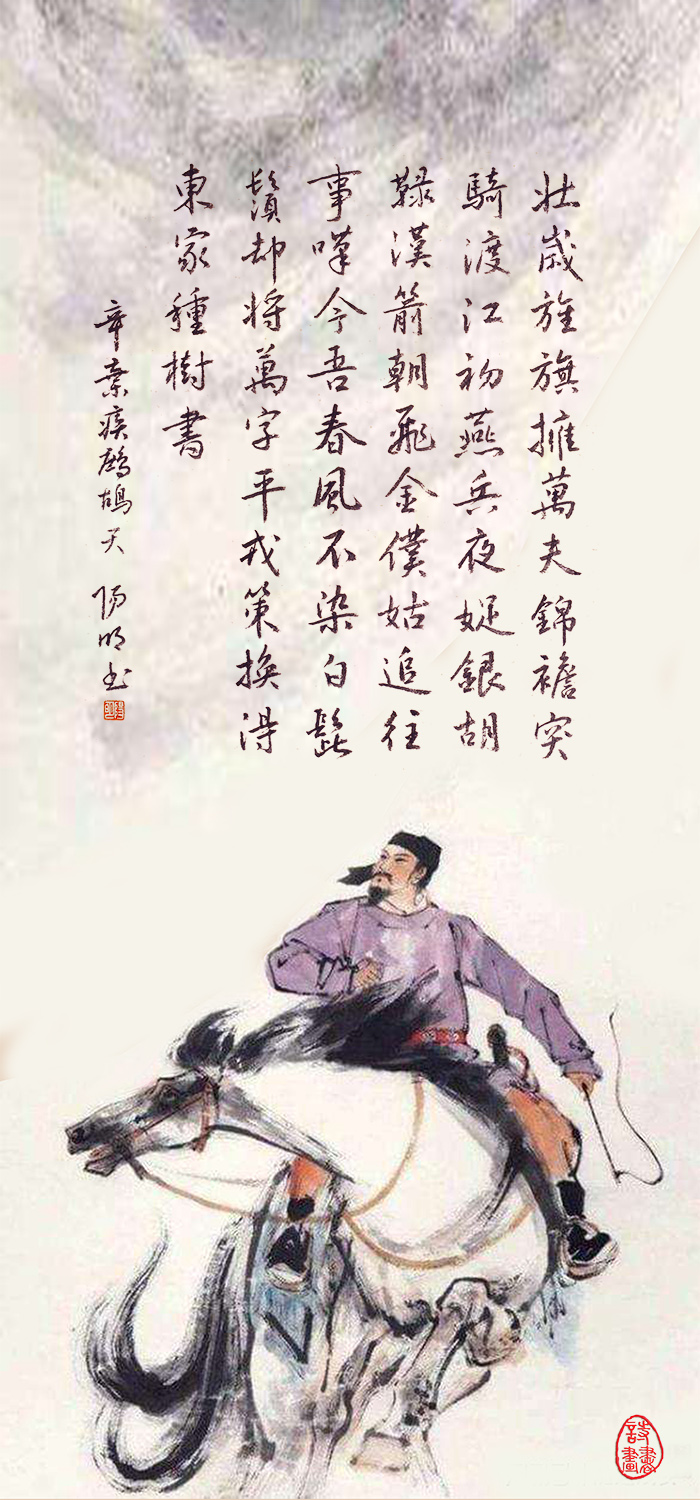 壯歲旌旗擁萬夫錦襜突
騎渡江初燕兵夜娖銀胡
䩮漢箭朝飛金僕姑追往
事嘆今吾春風不染白髭
鬚却將萬字平戎策換得
東家種樹書
辛棄疾鷓鴣天 陽明书
詩書畫